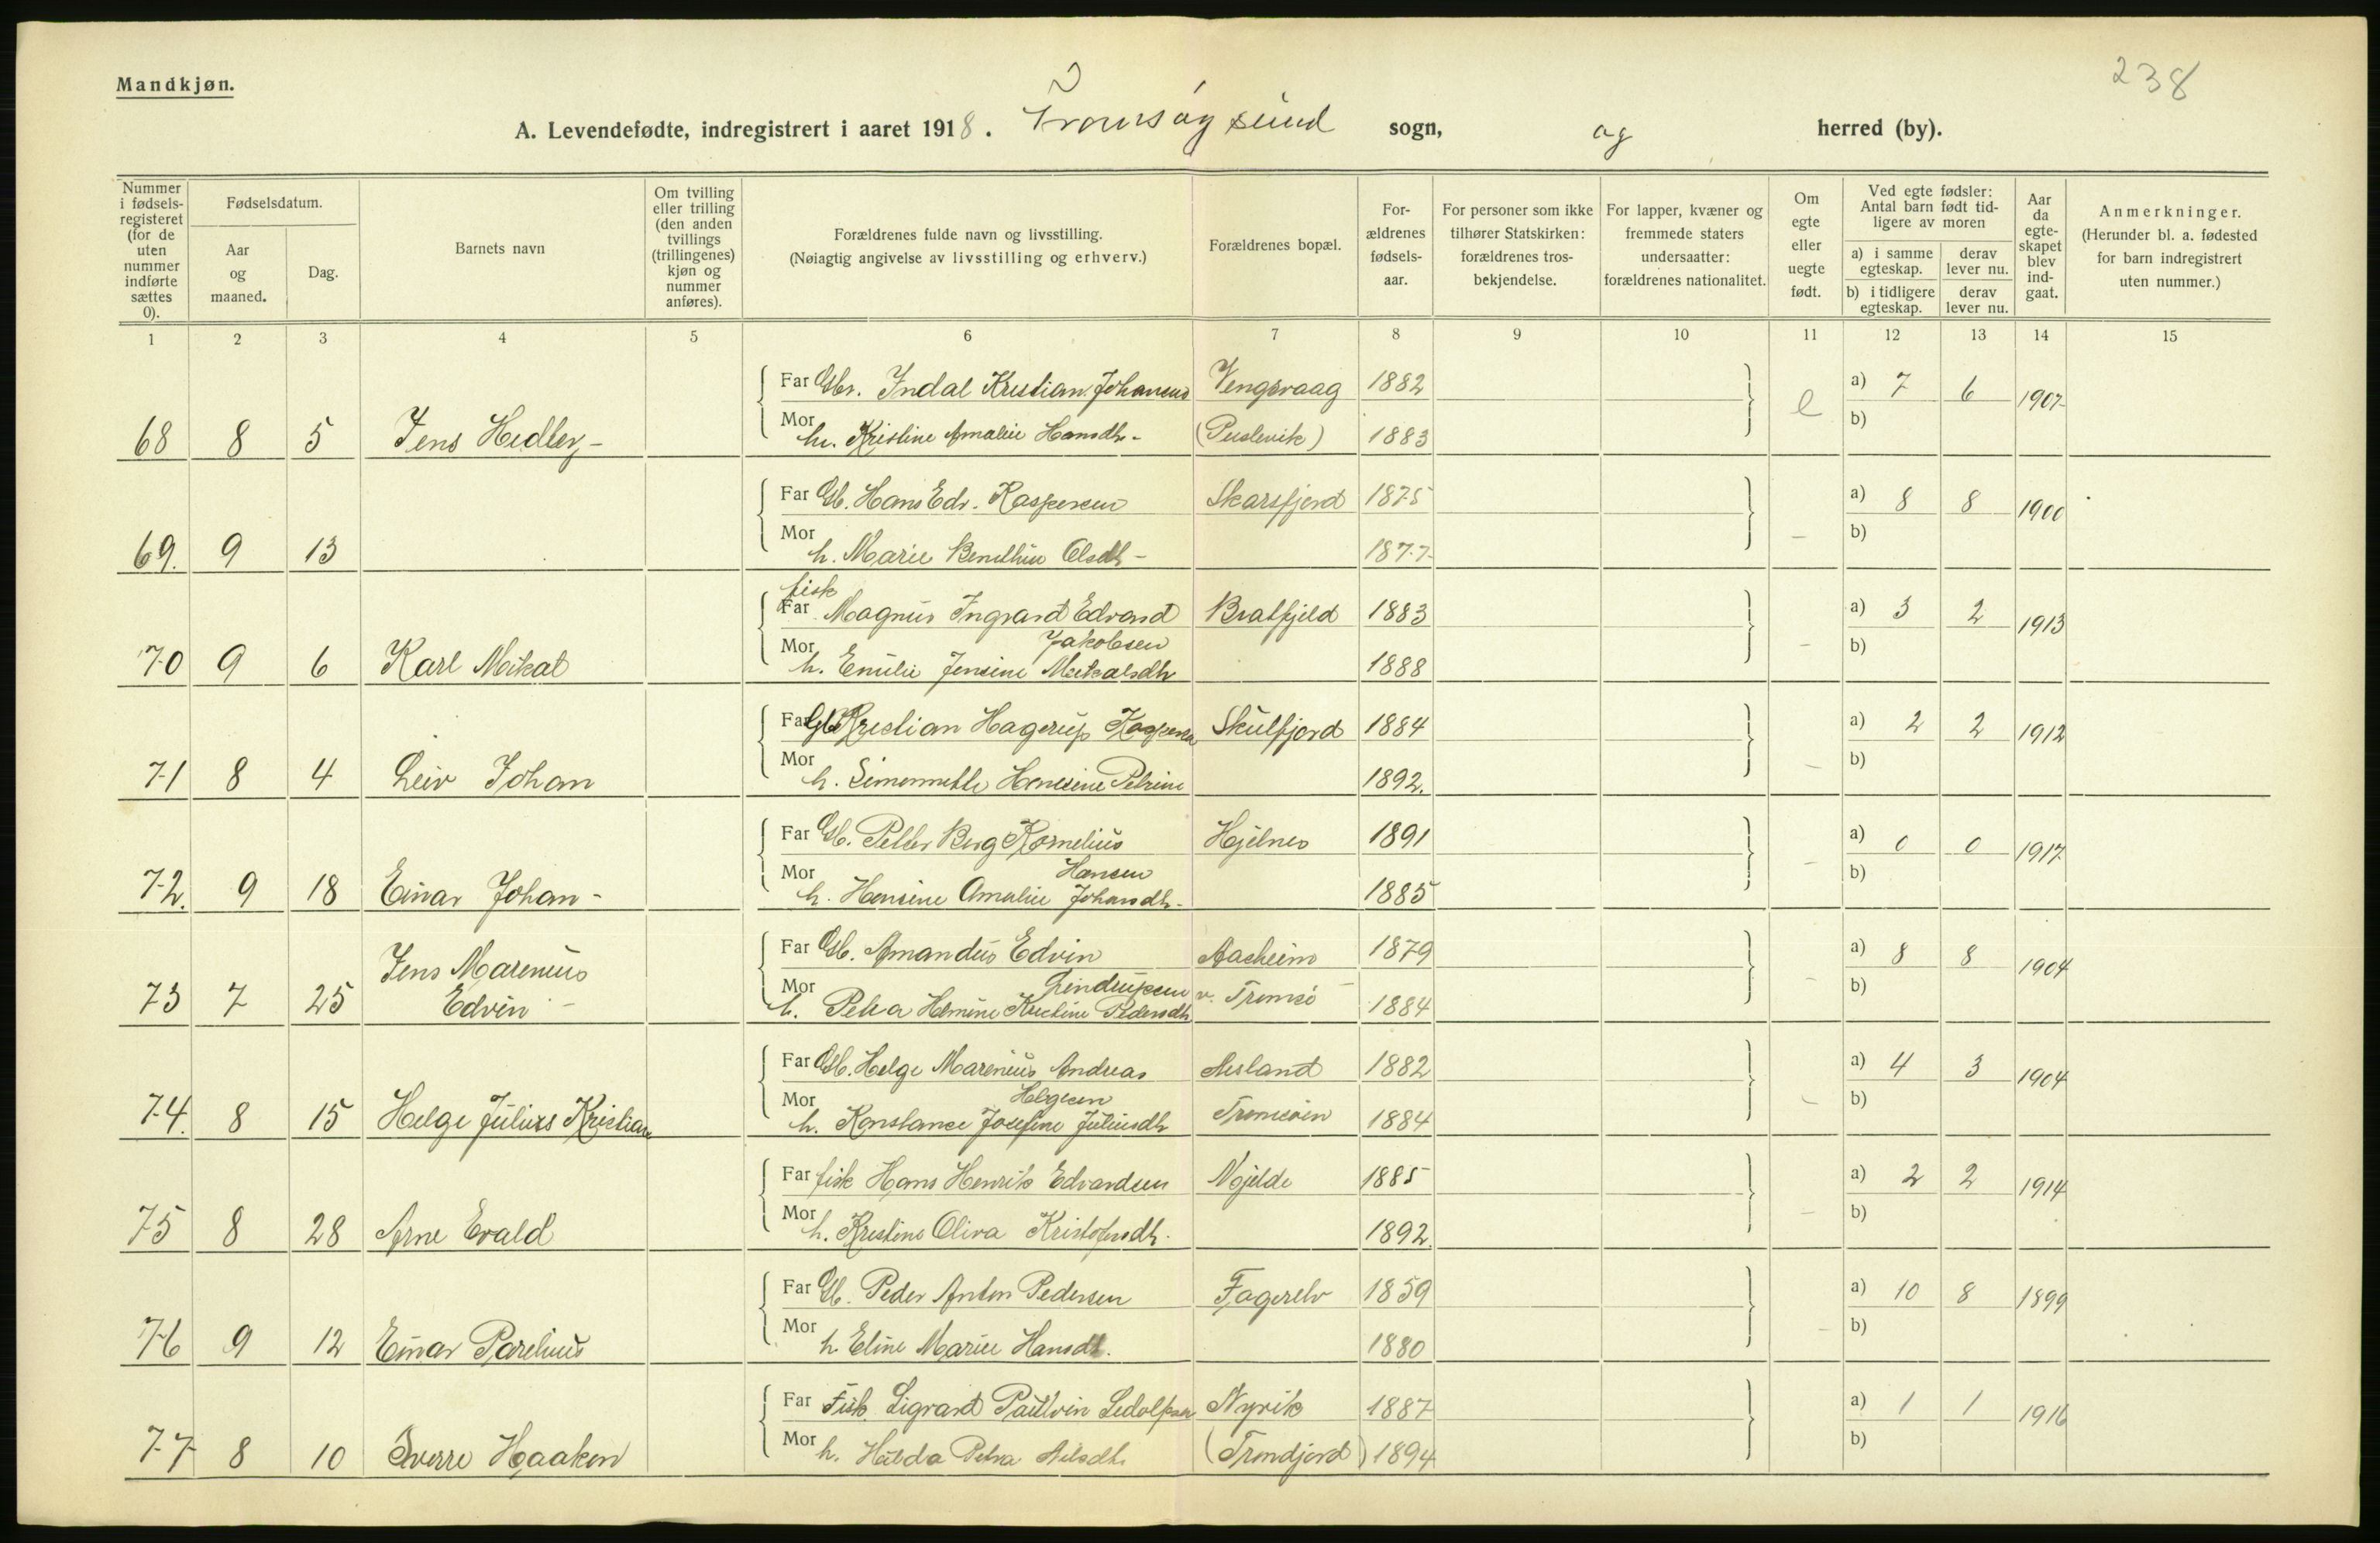 238
Mandkjøn.
A. Levendefødte, indregistrert i aaret 1918. Tromsøysund sogn, og herred (by).
Nummer i fødsels-registeret (for de uten nummer indførte sættes 0).
Fødselsdatum.
Aar og maaned.
Dag.
Barnets navn
Om tvilling eller trilling (den anden tvillings (trillingenes) kjøn og nummer anføres).
Forældrenes fulde navn og livsstilling.
(Nøiagtig angivelse av livsstilling og erhverv.)
Forældrenes bopæl.
For-ældrenes fødsels-aar.
For personer som ikke tilhører Statskirken: forældrenes tros-bekjendelse.
For lapper, kvæner og fremmede staters undersaatter: forældrenes nationalitet.
Om egte eller uegte født.
Ved egte fødsler: Antal barn født tid-ligere av moren
a) i samme egteskap. derav lever nu.
b) i tidligere egteskap. derav lever nu.
Aar da egte-skapet blev ind-gaat.
Anmerkninger.
(Herunder bl. a. fødested for barn indregistrert uten nummer.)
1 2 3 4 5 6 7 8 9 10 11 12 13 14 15
Far Gbr. Indal Kristian Johansen Vengsvaag 1882 a) 7 6
68 8 5 Jens Hedley - Mor h. Kristine Amalie Hansdtr - 1883 e b) 1907
Far Gb. Hans Edv. Kaspersen Skarsfjord 1875 a) 8 8
69. 9 13 Mor h. Marie Benthine Olsdtr - 1877 - b) 1900
fisk
Far Magnus Ingvard Edvard Bratfjeld 1883 a) 3 2
Jakobsen
70 9 6 Karl Meikal Mor h. Emilie Jensine Meikalsdtr 1888 - b) 1913
Far Gb Kristian Hagerup Kaspersen Skulfjord 1884 a) 2 2
71 8 4 Leiv Johan Mor h. Hansine Petrine 1892. - b) 1912
Far Gb. Petter Berg Kornelius Hjelnes 1891 a) 0 0
Hansen
72. 9 18 Einar Johan - Mor h. Hansine Amalie Johansdtr - 1885 - b) 1917
Far Gb. Amandus Edvin Aasheim 1879 a) 8 8
Jens Marenius Lindrupsen v. Tromsø
73 7 25 Edvin - Mor h. Petra Hemine Kristine Pedersdtr 1884 - b) 1904
Far Gb. Helge Marenius Andreas 1882 a) 4 3
Helgesen
74. 8 15 Helge Julius Kristian Mor h. Konstance Josefine Juliusdtr Tromsøen 1884 - b) 1904
Far fisk Hans Henrik Edvardsen Mjelde 1885 a) 2 2
75 8 28 Arne Evald Mor h. Kristine Oliva Kristofersdtr. 1892. - b) 1914
Far Gb. Peder Anton Pedersen Fagerelv 1859 a) 10 8
76 9 12 Einar Parelius Mor h. Eline Marie Hansdtr. 1880 - b) 1899
Far Fisk. Sigvard Paulvin Sedolfsen Nyvik 1887 a) 1 1
77 8 10 Sverre Haakon Mor h. Halda Petra Nilsdtr. (Tromdjord) 1894 b) 1916